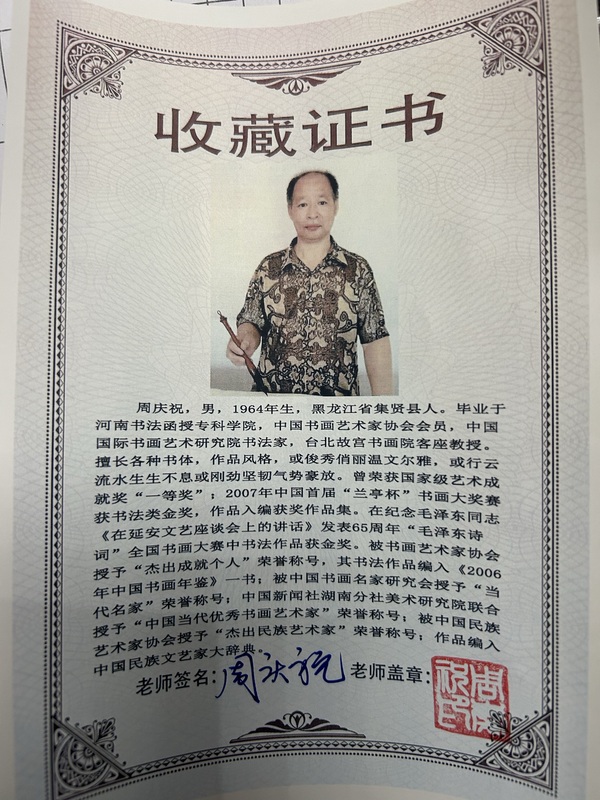 收藏证书
周庆祝，男，1964年生，黑龙江省集贤县人。毕业于
河南书法函授专科学院，中国书画艺术家协会会员，中国
国际书画艺术研究院书法家，台北故宫书画院客座教授。
擅长各种书体，作品风格，或俊秀俏丽温文尔雅，或行云
流水生生不息或刚劲坚韧气势豪放。曾荣获国家级艺术成
就奖“一等奖”；2007年中国首届“兰亭杯”书画大奖赛
获书法类金奖，作品入编获奖作品集。在纪念毛泽东同志
《在延安文艺座谈会上的讲话》发表65周年“毛泽东诗
词”全国书画大赛中书法作品获金奖。被书画艺术家协会
授予“杰出成就个人”荣誉称号，其书法作品编入《2006
年中国书画年鉴》一书；被中国书画名家研究会授予“当
代名家”荣誉称号；中国新闻社湖南分社美术研究院联合
授予“中国当代优秀书画艺术家”荣誉称号；被中国民族
艺术家协会授予“杰出民族艺术家”荣誉称号；作品编入
中国民族文艺家大辞典。
老师签名：周庆祝 老师盖章：
周庆祝印